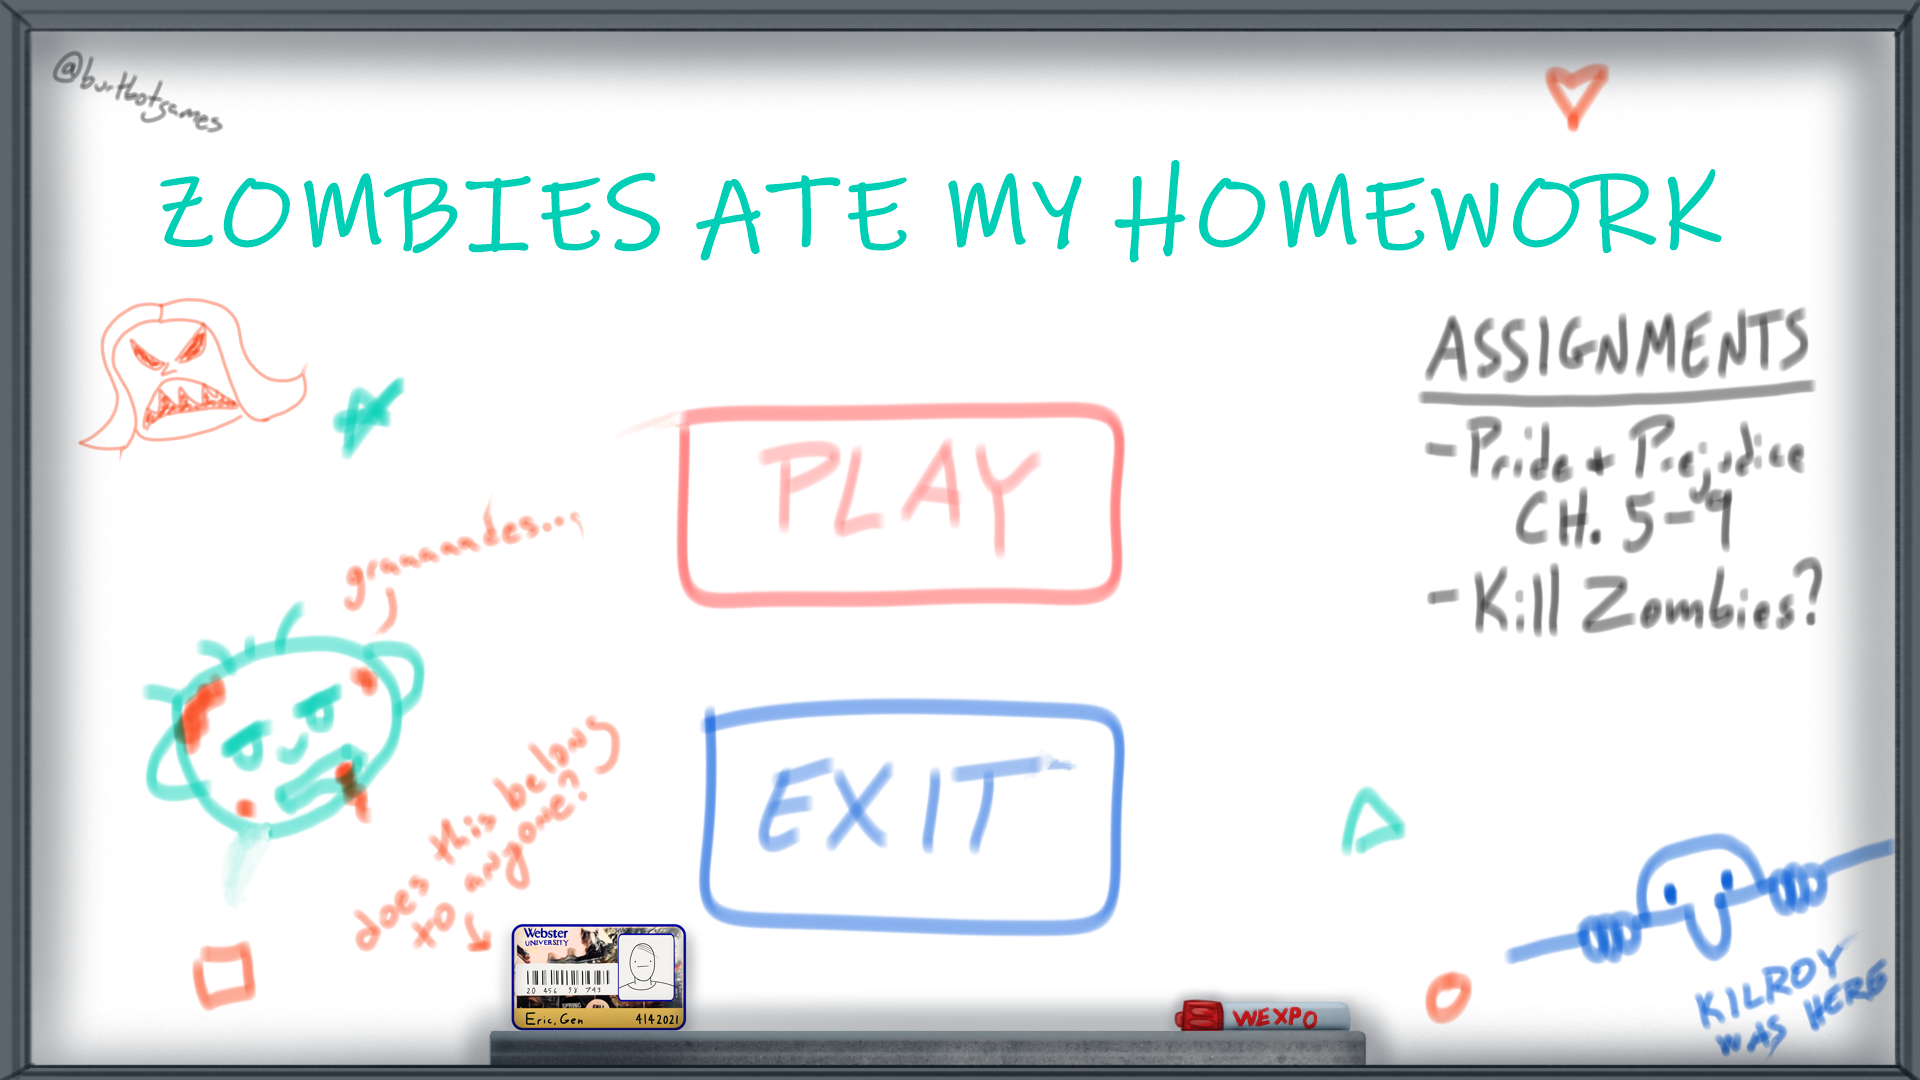 @burtbotgames
ZOMBIES ATE MY HOMEWORK
ASSIGNMENTS
- Pride + Prejudice
CH. 5-9
- Kill Zombies?
PLAY
graaaandes...
EXIT
does this belong
to anyone?
Webster
UNIVERSITY
20 456 98 743
SPRING
FALL
Eric, Gen
4142021
WEXPO
KILROY
WAS HERE